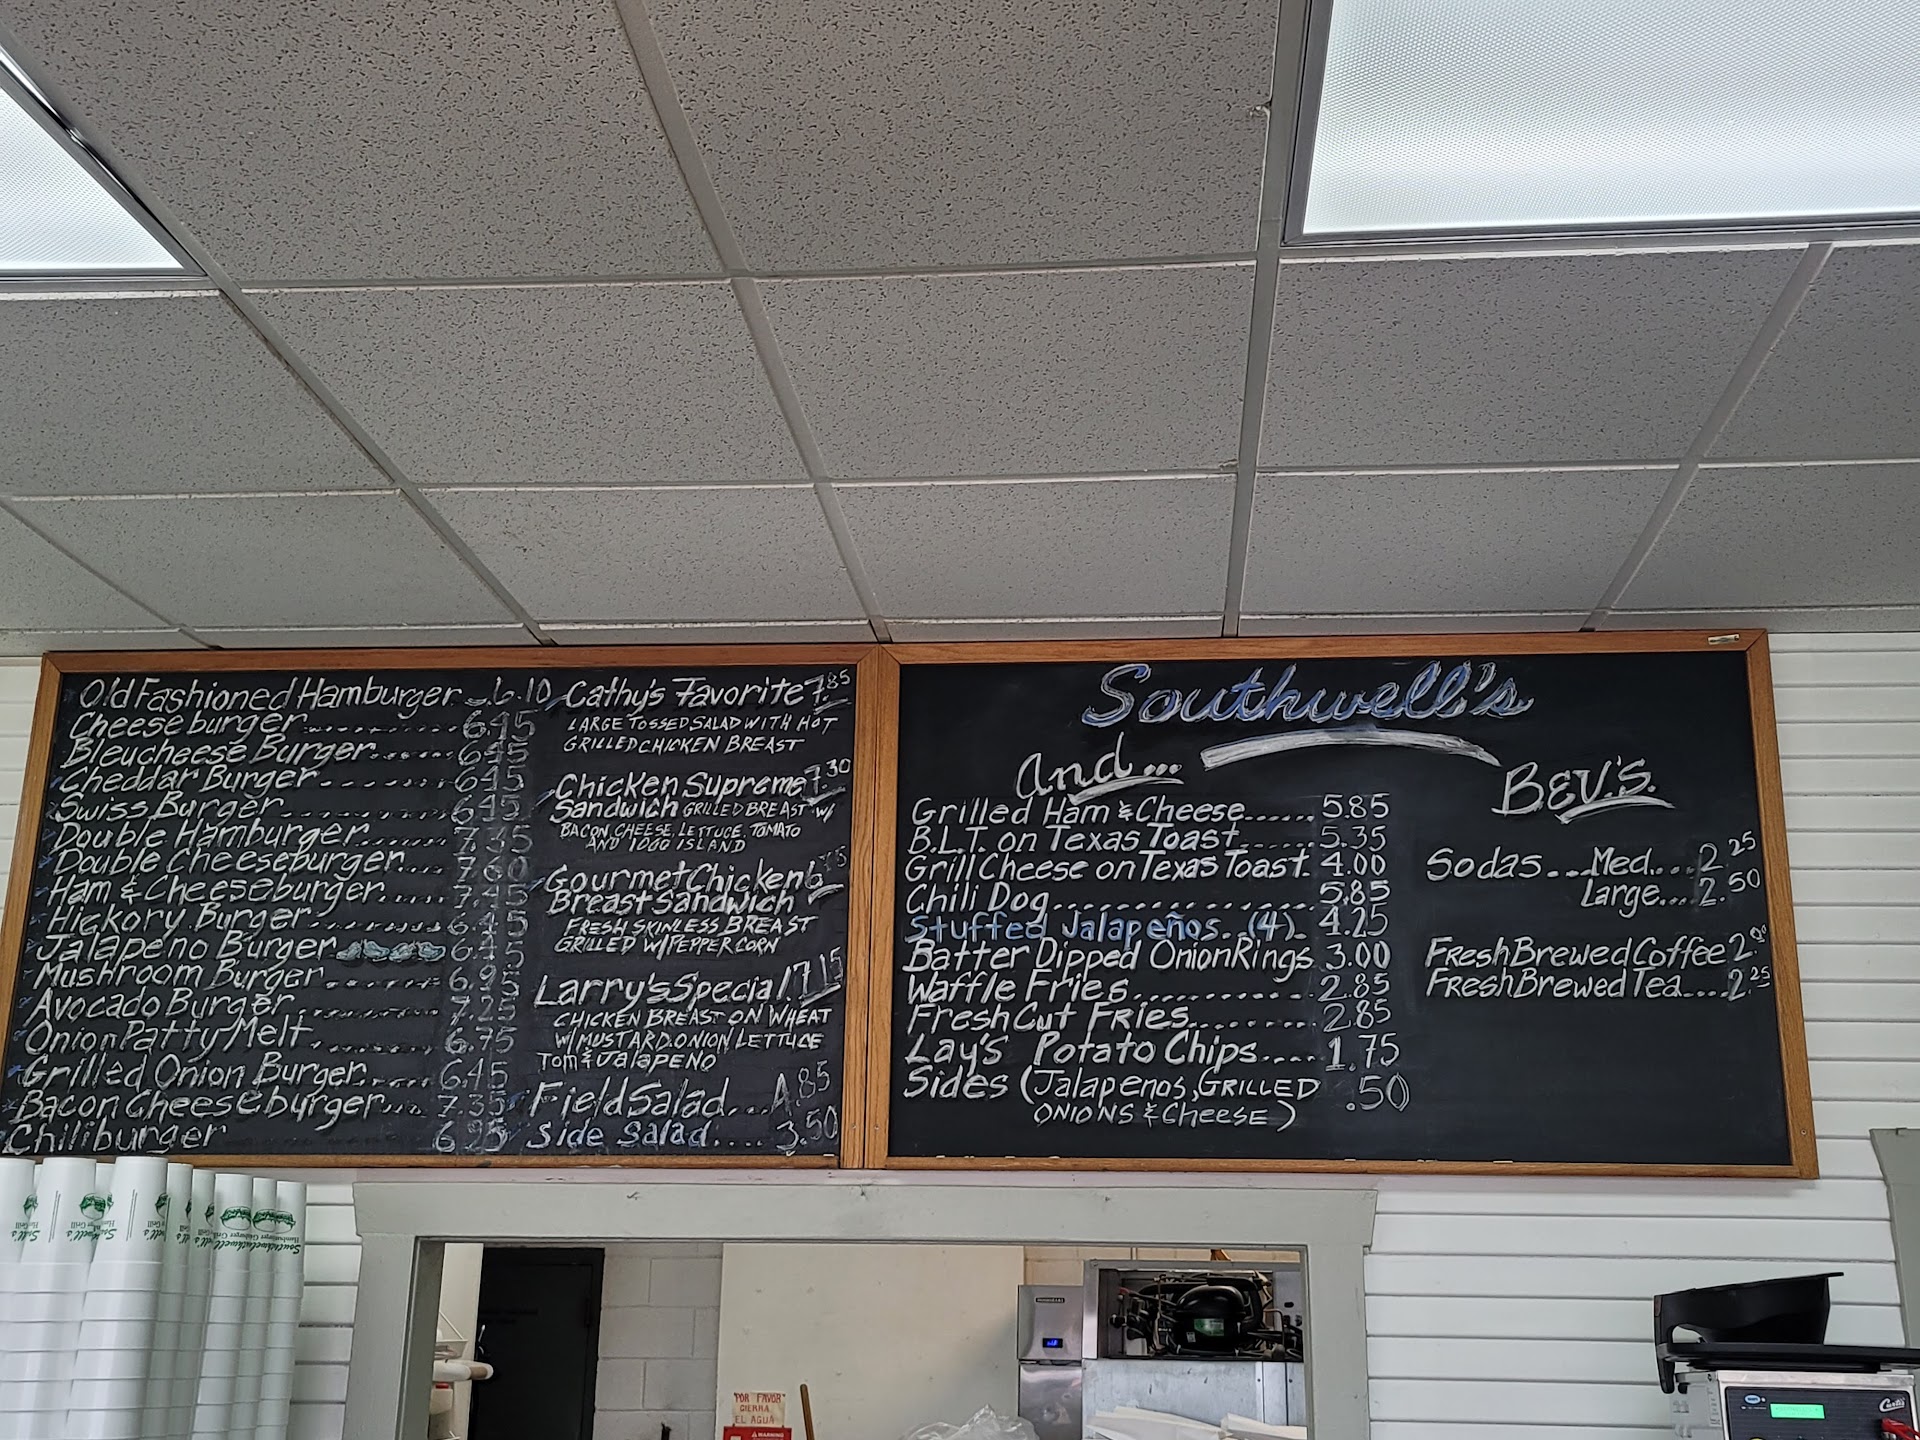 Old Fashioned Hamburger 6.10
Cheeseburger 6.45
Bleucheese Burger 6.45
Cheddar Burger 6.45
Swiss Burger 6.45
Double Hamburger 7.35
Double Cheeseburger 7.60
Ham & Cheeseburger 7.45
Hickory Burger 6.45
Jalapeno Burger 6.45
Mushroom Burger 6.95
Avocado Burger 7.25
Onion Patty Melt 6.75
Grilled Onion Burger 6.45
Bacon Cheeseburger 7.35
Chiliburger 6.95
Cathy's Favorite 7.85
LARGE TOSSED SALAD WITH HOT
GRILLED CHICKEN BREAST
Chicken Supreme 7.30
Sandwich GRILLED BREAST W/
BACON, CHEESE, LETTUCE, TOMATO
AND 1000 ISLAND
Gourmet Chicken
Breast Sandwich
FRESH SKINLESS BREAST
GRILLED W/PEPPERCORN
Larry's Special 7.15
CHICKEN BREAST ON WHEAT
W/MUSTARD, ONION, LETTUCE
TOM & JALAPENO
Field Salad... 4.85
Side Salad.... 3.50
Southwell's
And...
Grilled Ham & Cheese...... 5.85
B.L.T. on Texas Toast 5.35
Grill Cheese on Texas Toast 4.00
Chili Dog 5.85
Stuffed Jalapeños..(4) 4.25
Batter Dipped Onion Rings 3.00
Waffle Fries 2.85
Fresh Cut Fries 2.85
Lay's Potato Chips..... 1.75
Sides (Jalapenos, GRILLED .50
ONIONS & CHEESE)
BEV'S.
Sodas...Med... 2.25
Large... 2.50
Fresh Brewed Coffee 2.00
Fresh Brewed Tea.... 2.25
POR FAVOR
CIERRA
EL AGUA
WARNING
Curtis